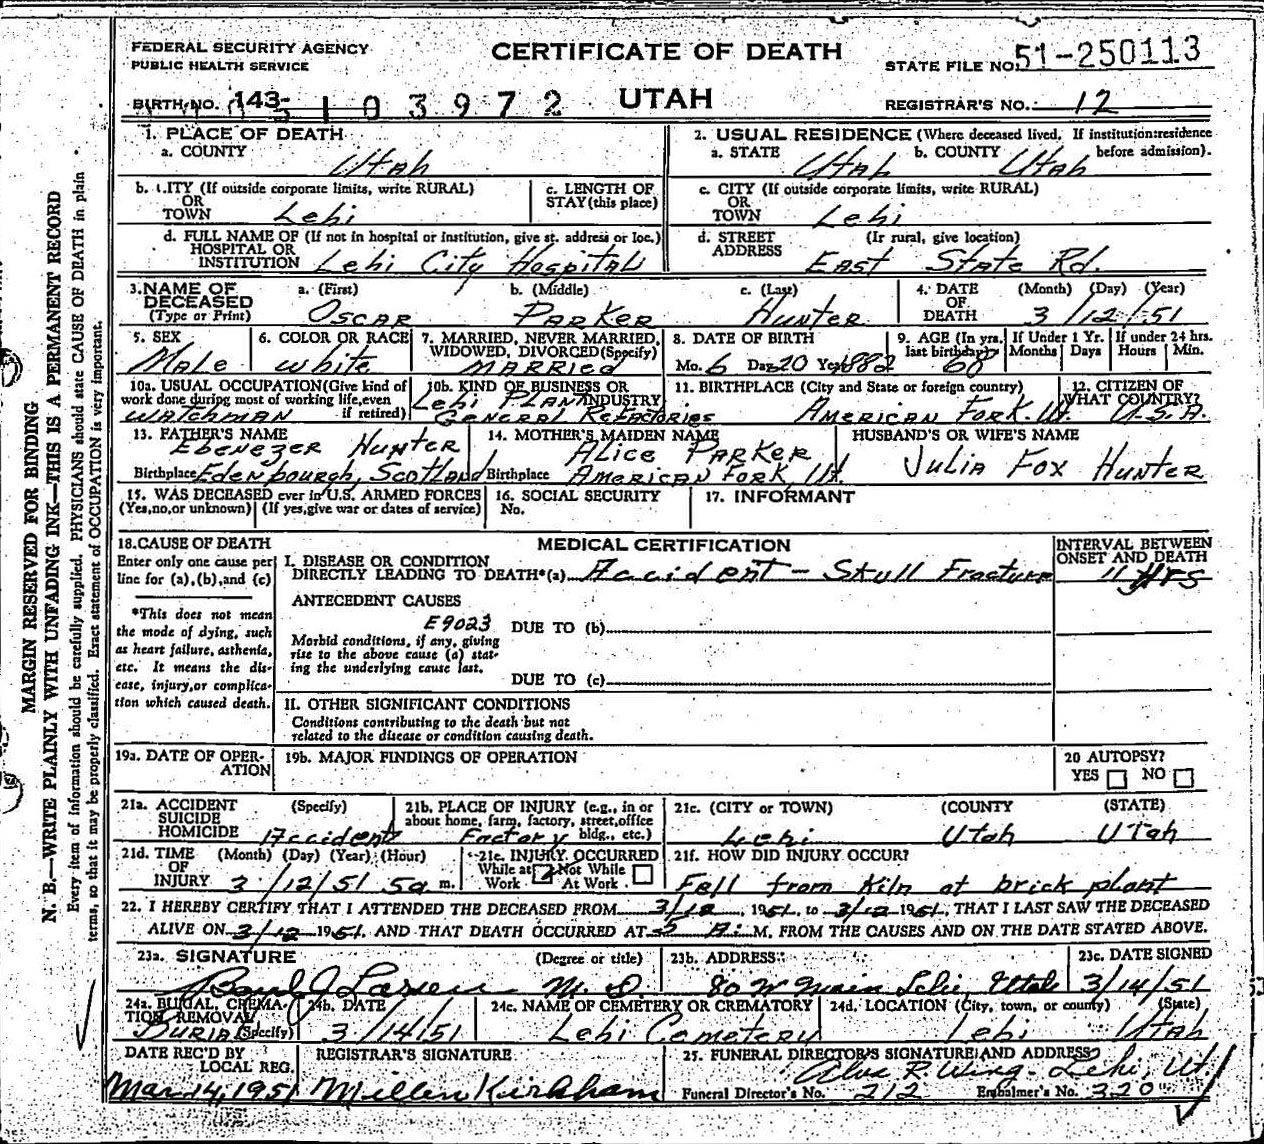 MARGIN RESERVED FOR BINDING
N. B.—WRITE PLAINLY WITH UNFADING INK—THIS IS A PERMANENT RECORD
Every item of information should be carefully supplied. PHYSICIANS should state CAUSE OF DEATH in plain
terms, so that it may be properly classified. Exact statement of OCCUPATION is very important.
FEDERAL SECURITY AGENCY
PUBLIC HEALTH SERVICE
CERTIFICATE OF DEATH
STATE FILE NO. 51-250113
BIRTH NO. 143
5103972
UTAH
REGISTRAR'S NO. 12
1. PLACE OF DEATH
a. COUNTY Utah
2. USUAL RESIDENCE (Where deceased lived. If institution: residence before admission).
a. STATE Utah b. COUNTY Utah
b. CITY (If outside corporate limits, write RURAL)
OR
TOWN Lehi
c. LENGTH OF
STAY (this place)
c. CITY (If outside corporate limits, write RURAL)
OR
TOWN Lehi
d. FULL NAME OF (If not in hospital or institution, give st. address or loc.)
HOSPITAL OR
INSTITUTION Lehi City Hospital
d. STREET (If rural, give location)
ADDRESS East State Rd.
3. NAME OF
DECEASED
(Type or Print)
a. (First) b. (Middle) c. (Last)
Oscar Parker Hunter
4. DATE
OF
DEATH
(Month) (Day) (Year)
3/12/51
5. SEX
Male
6. COLOR OR RACE
White
7. MARRIED, NEVER MARRIED,
WIDOWED, DIVORCED (Specify)
Married
8. DATE OF BIRTH
Mo. 6 Day 20 Year 1882
9. AGE (In yrs.
last birthday) 68
If Under 1 Yr.
Months Days
If under 24 hrs.
Hours Min.
10a. USUAL OCCUPATION (Give kind of
work done during most of working life, even
if retired)
Watchman
10b. KIND OF BUSINESS OR
INDUSTRY
Lehi Plant
General Refactories
11. BIRTHPLACE (City and State or foreign country)
American Fork. Ut.
12. CITIZEN OF
WHAT COUNTRY?
U.S.A.
13. FATHER'S NAME
Ebenezer Hunter
Birthplace Edenbourgh, Scotland
14. MOTHER'S MAIDEN NAME
Alice Parker
Birthplace American Fork, Ut.
HUSBAND'S OR WIFE'S NAME
Julia Fox Hunter
15. WAS DECEASED ever in U.S. ARMED FORCES
(Yes, no, or unknown) (If yes, give war or dates of service)
16. SOCIAL SECURITY
No.
17. INFORMANT
18. CAUSE OF DEATH
Enter only one cause per
line for (a), (b), and (c)
*This does not mean
the mode of dying, such
as heart failure, asthenia,
etc. It means the dis-
ease, injury, or complica-
tion which caused death.
MEDICAL CERTIFICATION
INTERVAL BETWEEN
ONSET AND DEATH
I. DISEASE OR CONDITION
DIRECTLY LEADING TO DEATH*(a) Accident - Skull Fracture
11 Hrs
ANTECEDENT CAUSES
E9023
Morbid conditions, if any, giving
rise to the above cause (a) stat-
ing the underlying cause last.
DUE TO (b)
DUE TO (c)
II. OTHER SIGNIFICANT CONDITIONS
Conditions contributing to the death but not
related to the disease or condition causing death.
19a. DATE OF OPER-
ATION
19b. MAJOR FINDINGS OF OPERATION
20 AUTOPSY?
YES NO
21a. ACCIDENT (Specify)
SUICIDE
HOMICIDE Accident
21b. PLACE OF INJURY (e.g., in or
about home, farm, factory, street, office
bldg., etc.)
Factory
21c. (CITY or TOWN) (COUNTY) (STATE)
Lehi Utah Utah
21d. TIME (Month) (Day) (Year) (Hour)
OF
INJURY 3/12/51 5a m.
21e. INJURY OCCURRED
While at Work Not While At Work
21f. HOW DID INJURY OCCUR?
Fell from Kiln at brick plant
22. I HEREBY CERTIFY THAT I ATTENDED THE DECEASED FROM 3/12, 1951, to 3/12 1951, THAT I LAST SAW THE DECEASED
ALIVE ON 3/12 1951. AND THAT DEATH OCCURRED AT 5 A. M. FROM THE CAUSES AND ON THE DATE STATED ABOVE.
23a. SIGNATURE (Degree or title)
J Larsen M. D
23b. ADDRESS
80 W Main Lehi, Utah
23c. DATE SIGNED
3/14/51
24a. BURIAL, CREMA-
TION, REMOVAL
(Specify)
Burial
24b. DATE
3/14/51
24c. NAME OF CEMETERY OR CREMATORY
Lehi Cemetery
24d. LOCATION (City, town, or county) (State)
Lehi Utah
DATE REC'D BY
LOCAL REG.
Mar 14, 1951
REGISTRAR'S SIGNATURE
Millen Kirkham
25. FUNERAL DIRECTOR'S SIGNATURE AND ADDRESS
Alva R. Wing - Lehi, Ut.
Funeral Director's No. 212 Embalmer's No. 320